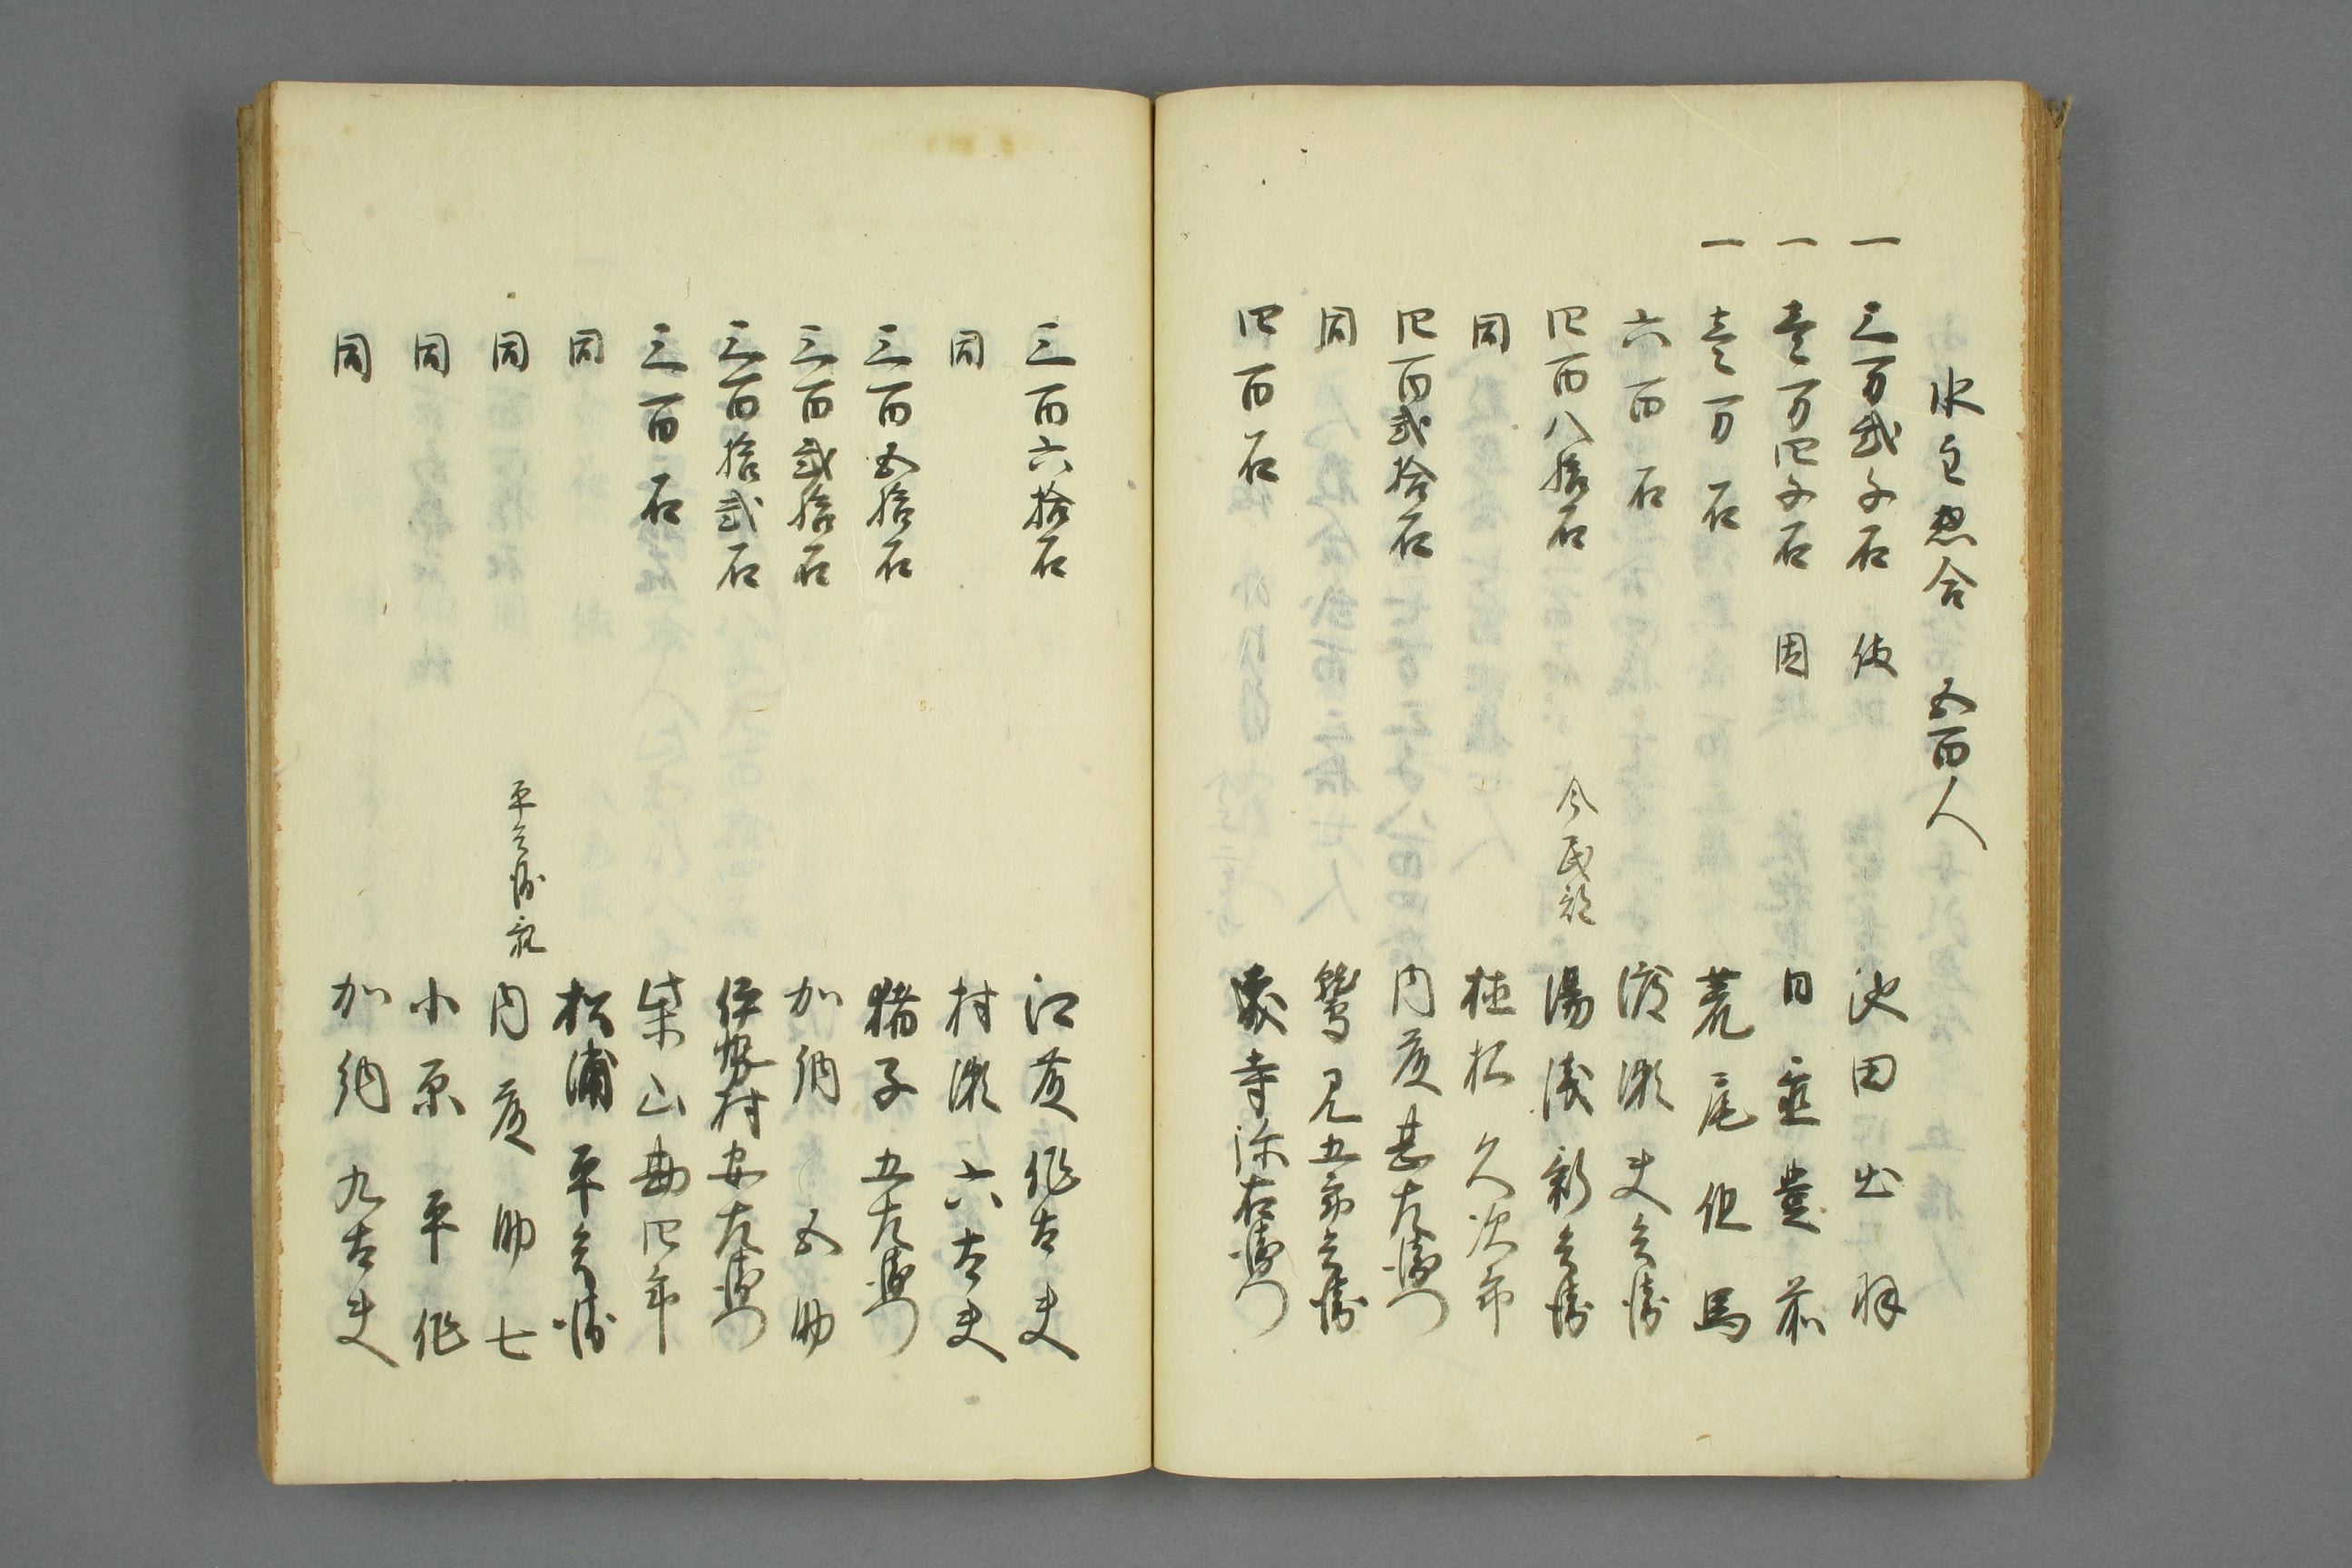 水主惣合 五百人
一 三万弐千石 備 池田出羽
一 壱万四千石 因 日置豊前
一 壱万石 荒尾但馬
六百石 渡瀬丈兵衛
四百八拾石 今民部 湯浅新兵衛
同 植松久次郎
四百弐拾石 内藤甚左衛門
同 鷲見五郎兵衛
四百石 寺弥右衛門
三百六拾石 江藤作太夫
同 村瀬六太夫
三百五拾石 猪子五左衛門
三百弐拾石 加納五助
三百拾弐石 伊勢村安左衛門
三百石 柴山勘四郎
同 松浦平兵衛
同 平兵衛 内藤助七
同 小原平作
同 加納九太夫